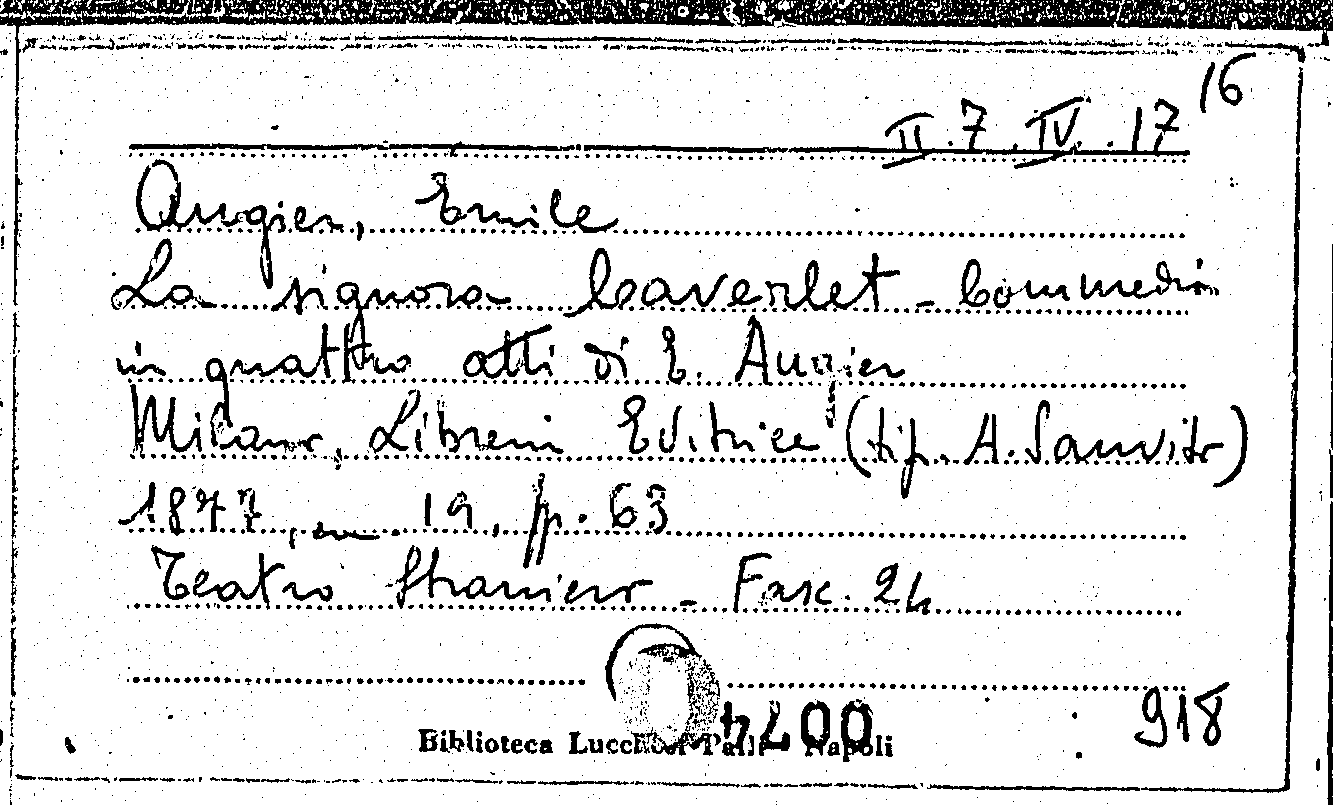 II.7.IV.17 16
Augier, Emile
La signora Caverlet - Commedia
in quattro atti di E. Augier
Milano, Libreria Editrice (tip. A. Sanvito)
1877, cm. 19, pp. 63
Teatro Straniero - Fasc. 24
918
0074
Biblioteca Lucchesi Palli - Napoli